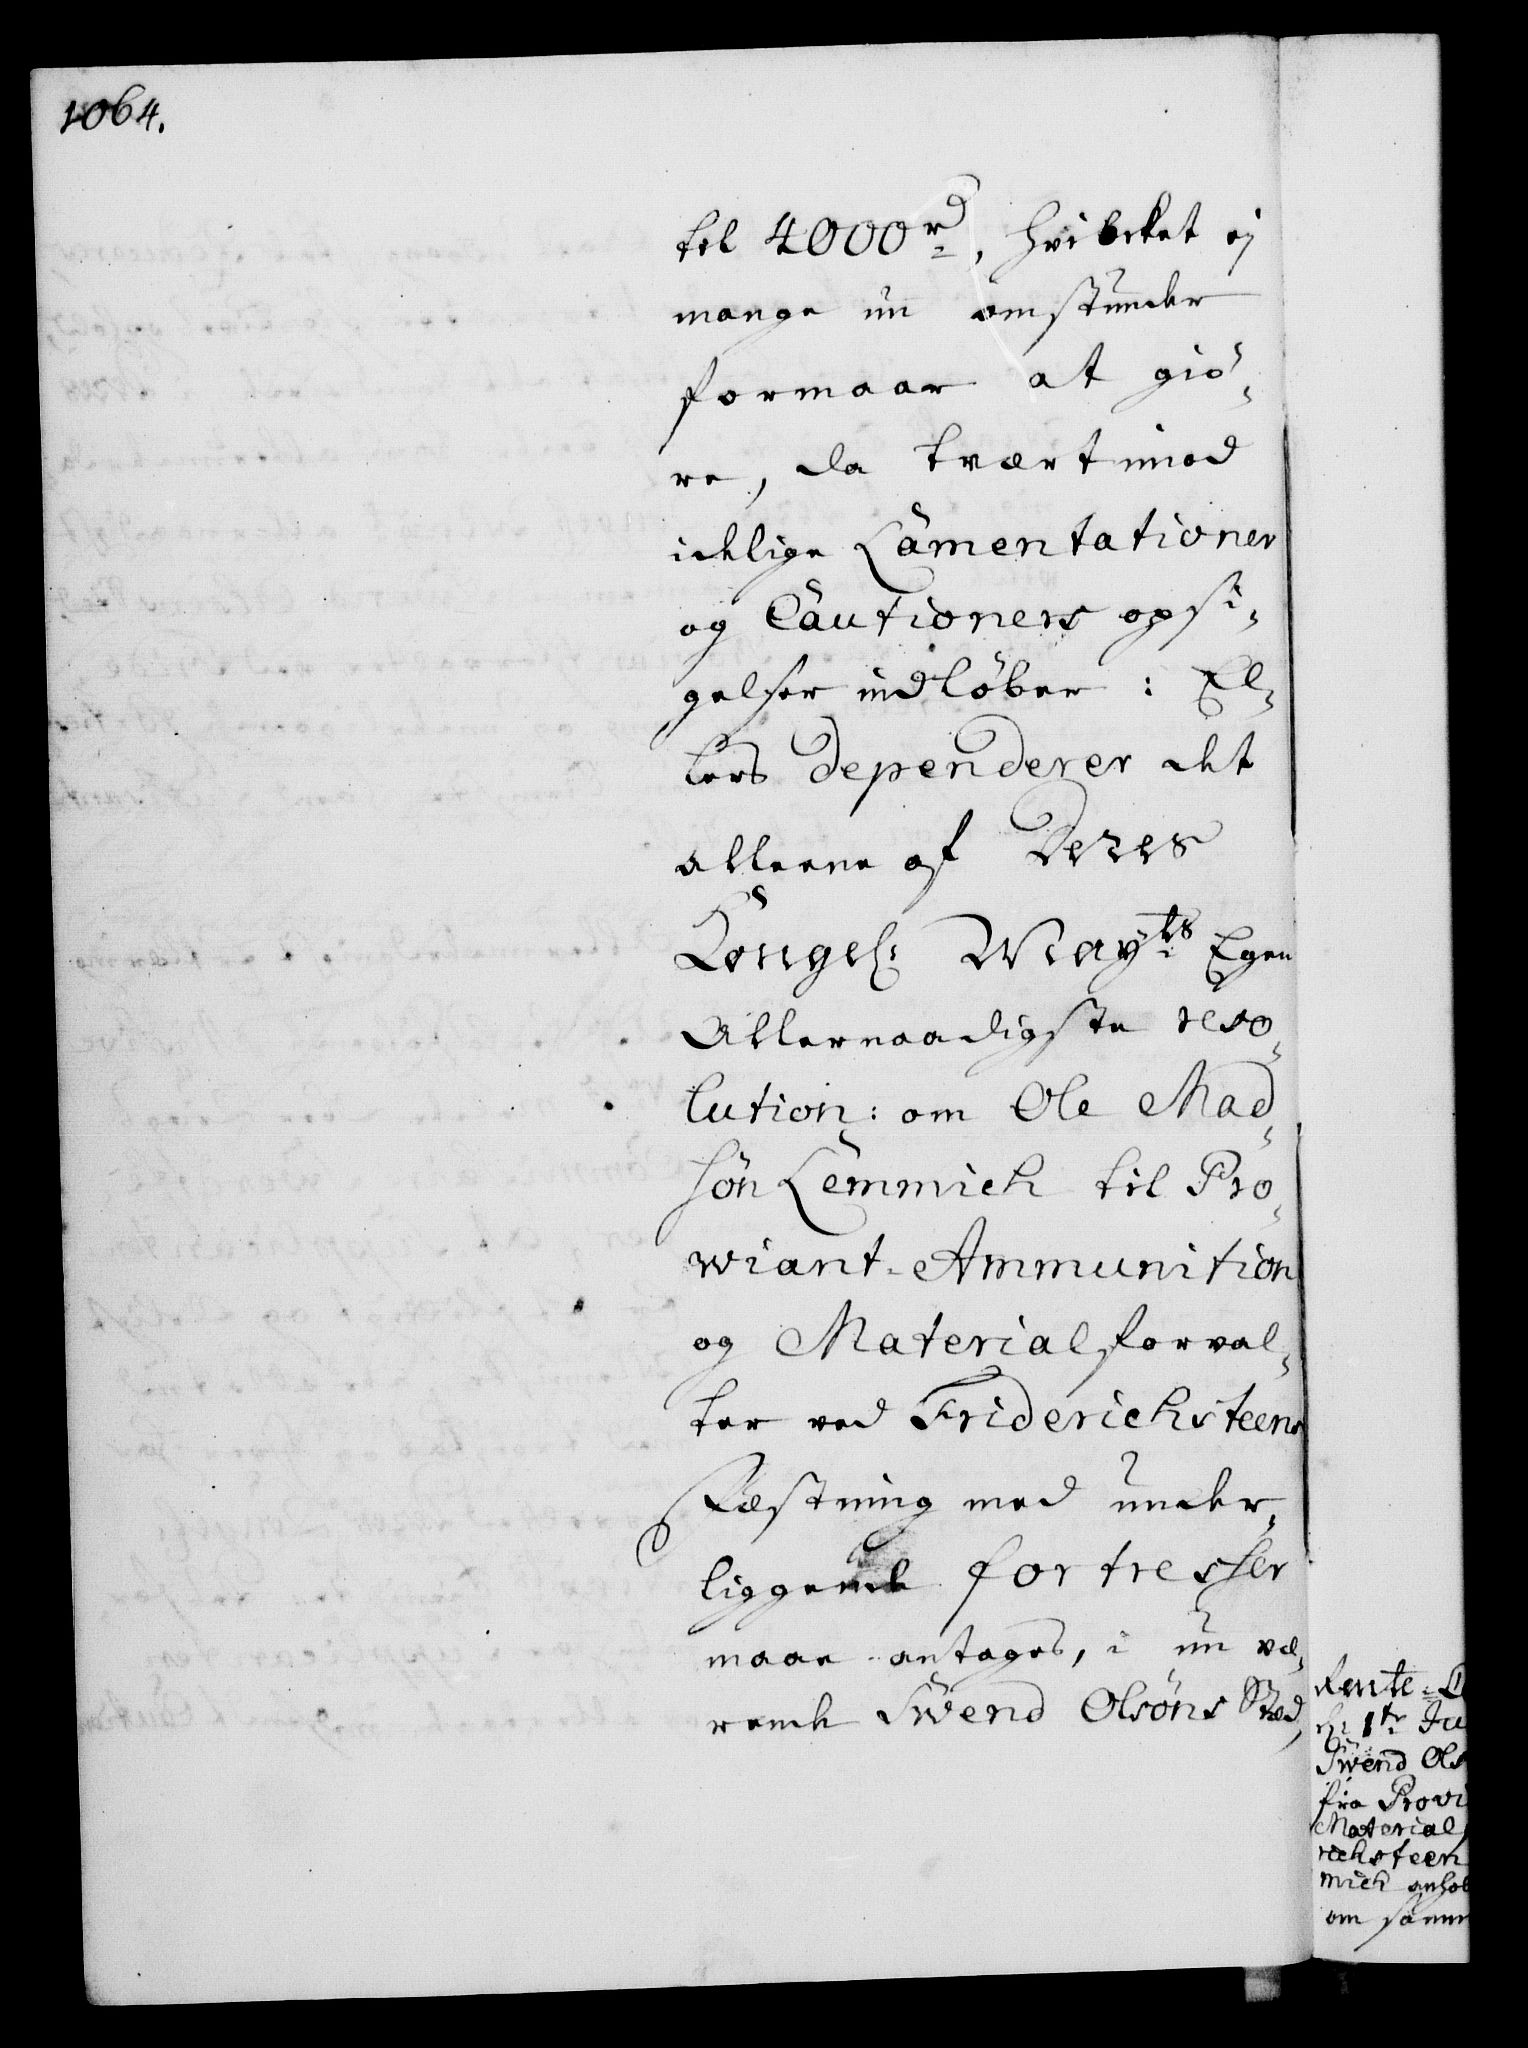 1064.
til 4000 rd, hvilcket ej
mange nu omstunder
formaar at giö„
re, da tvært imod
idelige Lamentationer
og Cautioners opsi„
gelser indløber: El„
lers dependerer det
alleene af Deres
Kongel: Mayts Egen
Allernaadigste reso„
lution: om Ole Mad„
sön Lemmich til Pro„
wiant-Ammunition
og Material forval„
ter ved Friderichsteens
Fæstning med under„
liggende fortresser
maae antages, i nu væ„
rende Swend Olsöns Sted,
Rente-
d: 1te Ju
Swend Ols
fra Provi
Material
richsteen
mich anhol
om samm